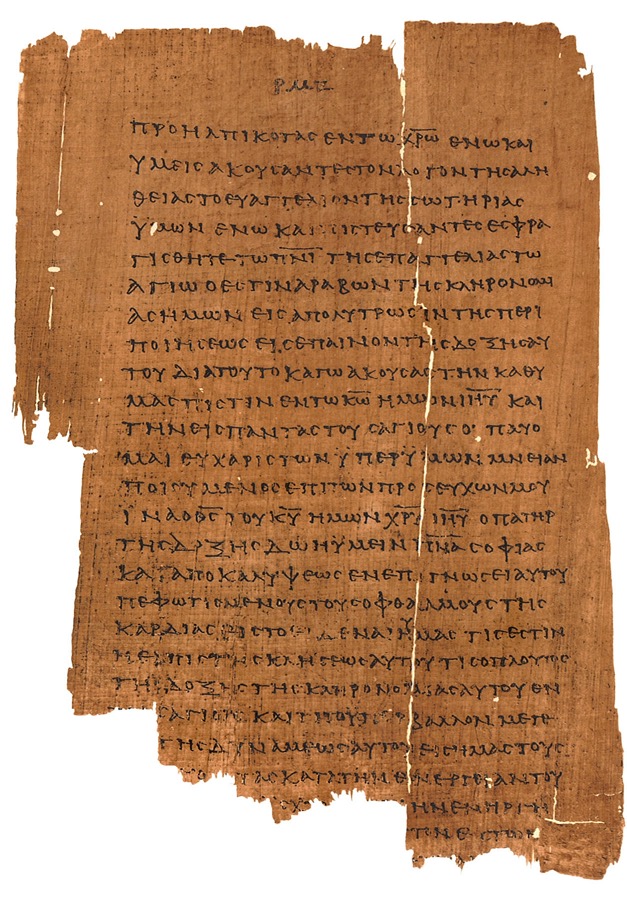 Ρ Μ Ζ
ΠΡΟΗΛΠΙΚΟΤΑϹ ΕΝ ΤΩ ΧΡΩ ΕΝ Ω ΚΑΙ
ΥΜΕΙϹ ΑΚΟΥϹΑΝΤΕϹ ΤΟΝ ΛΟΓΟΝ ΤΗϹ ΑΛΗ
ΘΕΙΑϹ ΤΟ ΕΥΑΓΓΕΛΙΟΝ ΤΗϹ ϹΩΤΗΡΙΑϹ
ΥΜΩΝ ΕΝ Ω ΚΑΙ ΠΙϹΤΕΥϹΑΝΤΕϹ ΕϹΦΡΑ
ΓΙϹΘΗΤΕ ΤΩ ΠΝΙ ΤΗϹ ΕΠΑΓΓΕΛΙΑϹ ΤΩ
ΑΓΙΩ Ο ΕϹΤΙΝ ΑΡΑΒΩΝ ΤΗϹ ΚΛΗΡΟΝΟΜΙ
ΑϹ ΗΜΩΝ ΕΙϹ ΑΠΟΛΥΤΡΩϹΙΝ ΤΗϹ ΠΕΡΙ
ΠΟΙΗϹΕΩϹ ΕΙϹ ΕΠΑΙΝΟΝ ΤΗϹ ΔΟΞΗϹ ΑΥ
ΤΟΥ ΔΙΑ ΤΟΥΤΟ ΚΑΓΩ ΑΚΟΥϹΑϹ ΤΗΝ ΚΑΘ Υ
ΜΑϹ ΠΙϹΤΙΝ ΕΝ ΤΩ ΚΩ ΗΜΩΝ ΙΗΥ ΚΑΙ
ΤΗΝ ΕΙϹ ΠΑΝΤΑϹ ΤΟΥϹ ΑΓΙΟΥϹ ΟΥ ΠΑΥΟ
ΜΑΙ ΕΥΧΑΡΙϹΤΩΝ ΥΠΕΡ ΥΜΩΝ ΜΝΕΙΑΝ
ΠΟΙΟΥΜΕΝΟϹ ΕΠΙ ΤΩΝ ΠΡΟϹΕΥΧΩΝ ΜΟΥ
ΙΝΑ Ο ΘϹ ΤΟΥ ΚΥ ΗΜΩΝ ΧΡΥ ΙΗΥ Ο ΠΑΤΗΡ
ΤΗϹ ΔΟΞΗϹ ΔΩΗ ΥΜΕΙΝ ΠΝΑ ϹΟΦΙΑϹ
ΚΑΙ ΑΠΟΚΑΛΥΨΕΩϹ ΕΝ ΕΠΙΓΝΩϹΕΙ ΑΥΤΟΥ
ΠΕΦΩΤΙϹΜΕΝΟΥϹ ΤΟΥϹ ΟΦΘΑΛΜΟΥϹ ΤΗϹ
ΚΑΡΔΙΑϹ ΕΙϹ ΤΟ ΕΙΔΕΝΑΙ ΥΜΑϹ ΤΙϹ ΕϹΤΙΝ
Η ΕΛΠΙϹ ΤΗϹ ΚΛΗϹΕΩϹ ΑΥΤΟΥ ΤΙϹ Ο ΠΛΟΥΤΟϹ
ΤΗϹ ΔΟΞΗϹ ΤΗϹ ΚΛΗΡΟΝΟΜΙΑϹ ΑΥΤΟΥ ΕΝ
ΑΓΙΟΙϹ ΚΑΙ ΤΙ ΤΟ ΥΠΕΡΒΑΛΛΟΝ ΜΕΓΕ
ΤΗϹ ΔΥΝΑΜΕΩϹ ΑΥΤΟΥ ΕΙϹ ΗΜΑϹ ΤΟΥϹ
ΚΑΤΑ ΤΗΝ ΕΝΕΡΓΕΙΑΝ ΤΟΥ
ΗΝ ΕΝΗΡΓΗ